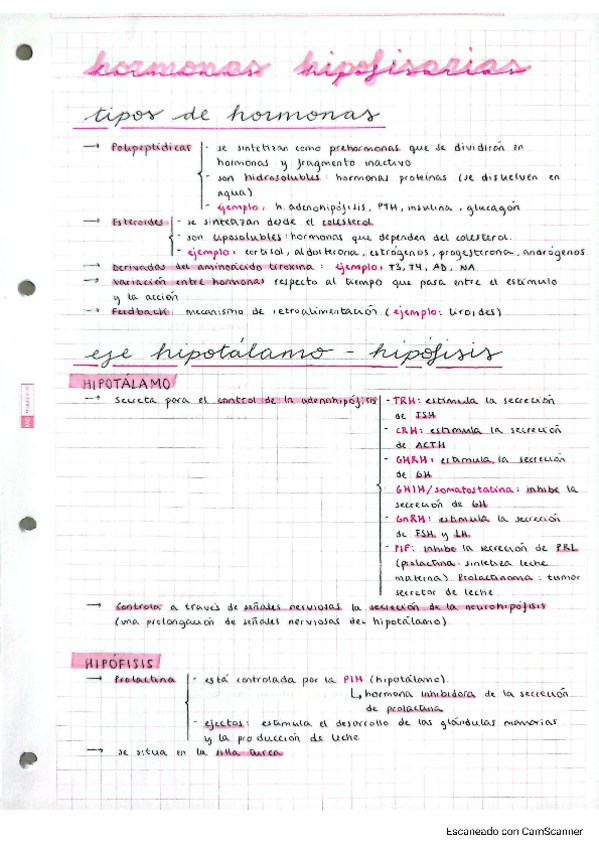 hormonas hipofisarias
tipos de hormonas
→ Polipeptídicas - se sintetizan como prehormonas que se dividirán en
hormonas y fragmento inactivo
- son hidrosolubles: hormonas proteínas (se disuelven en
agua)
- ejemplo: h. adenohipófisis, PTH, insulina, glucagón
→ Esteroides - se sintetizan desde el colesterol
- son liposolubles: hormonas que dependen del colesterol.
- ejemplo: cortisol, aldosterona, estrógenos, progesterona, andrógenos
→ Derivadas del aminoácido tiroxina: ejemplo: T3, T4, AD, NA
→ Variación entre hormonas respecto al tiempo que pasa entre el estímulo
y la acción
→ Feedback: mecanismo de retroalimentación (ejemplo: tiroides)
eje hipotálamo - hipófisis
HIPOTÁLAMO
→ secreta para el control de la adenohipófisis - TRH: estimula la secreción
de TSH
- CRH: estimula la secreción
de ACTH
- GHRH: estimula la secreción
de GH
- GHIH/somatostatina: inhibe la
secreción de GH
- GnRH: estimula la secreción
de FSH y LH
- PIF: inhibe la secreción de PRL
(prolactina: sintetiza leche
materna). Prolactinoma: tumor
secretor de leche
→ Controla a través de señales nerviosas la secreción de la neurohipófisis
(una prolongación de señales nerviosas del hipotálamo).
HIPÓFISIS
→ Prolactina - está controlada por la PIH (hipotálamo).
↳ hormona inhibidora de la secreción
de prolactina
- efectos: estimula el desarrollo de las glándulas mamarias
y la producción de leche
→ se situa en la silla turca
Escaneado con CamScanner